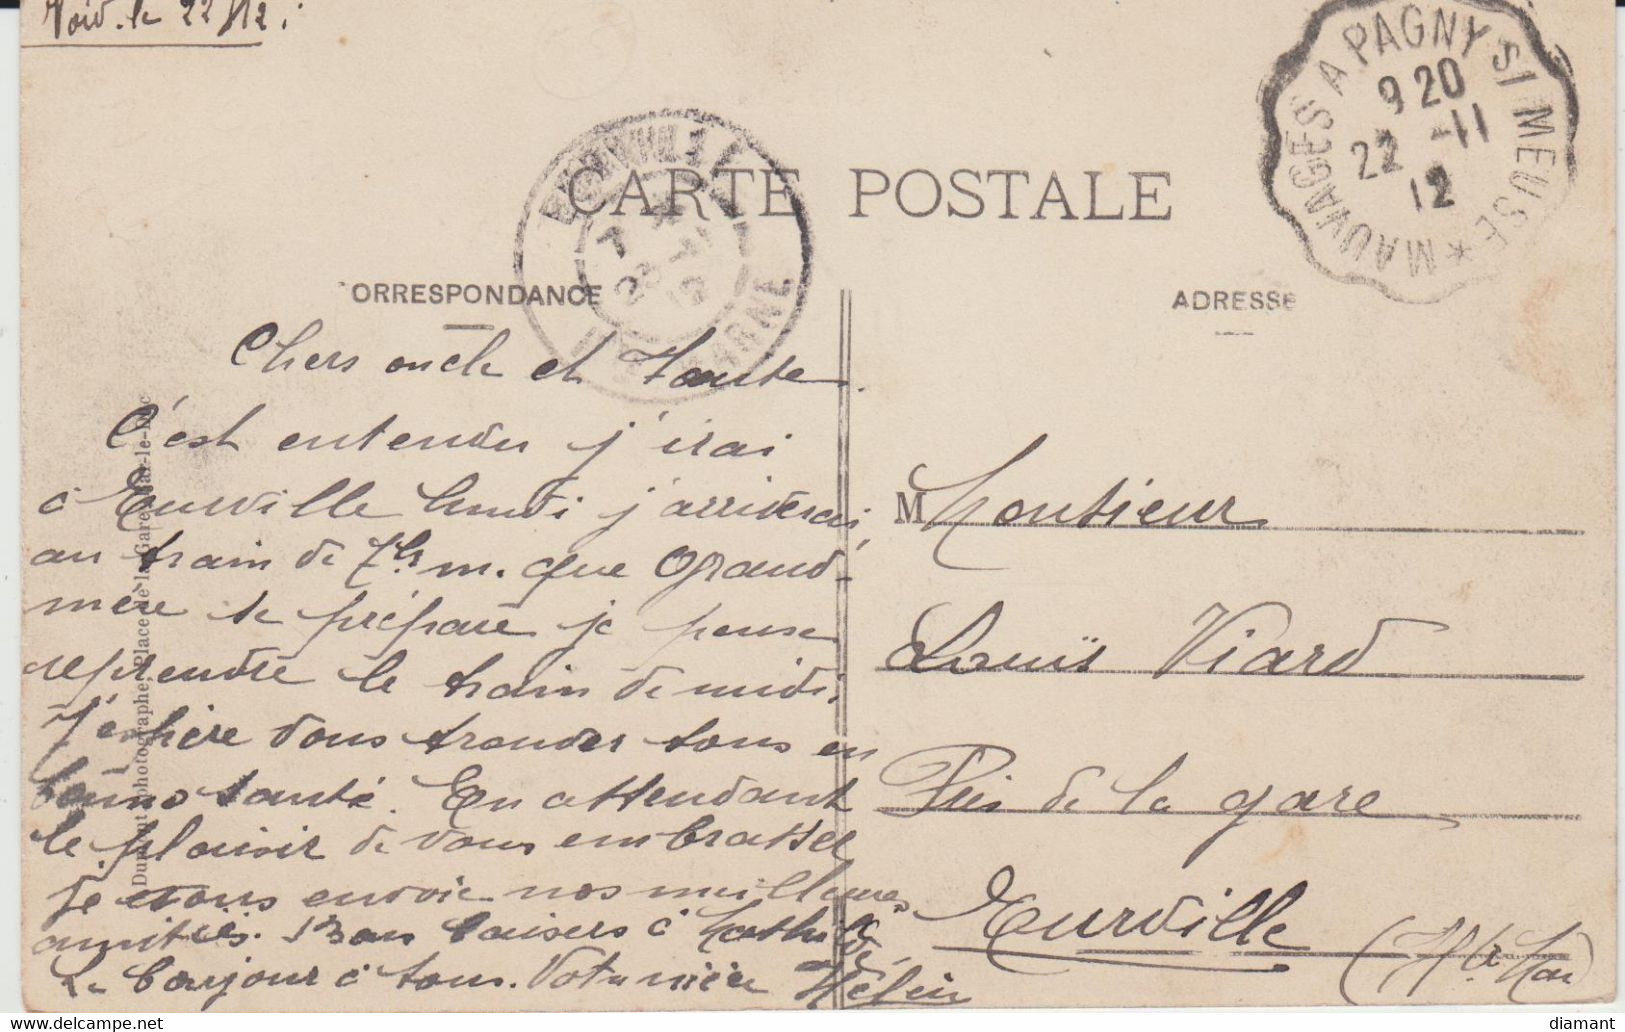 Void. le 22/12.
MAUVAGES A PAGNY S/ MEUSE *
9 20
22 -11
12
CARTE POSTALE
EURVILLE
7
23
12
MARNE
ORRESPONDANCE
ADRESSE
Chers oncle et Tante.
C'est entendu j'irai
à Eurville lundi j'arriverai
au train de 7h m. que Grand-
mère se prépare je pense
reprendre le train de midi.
J'espère vous trouver tous en
bonne santé. En attendant
le plaisir de vous embrasser
Je vous envoie nos meilleures
amitiés. Bons baisers à Mathilde
Le bonjour à tous. Votre nièce Hélène
M Monsieur
Louis Viard
Près de la gare
Eurville (Hte Mar)
Dumont photographe, Place de la Gare, Bar-le-Duc
diamant